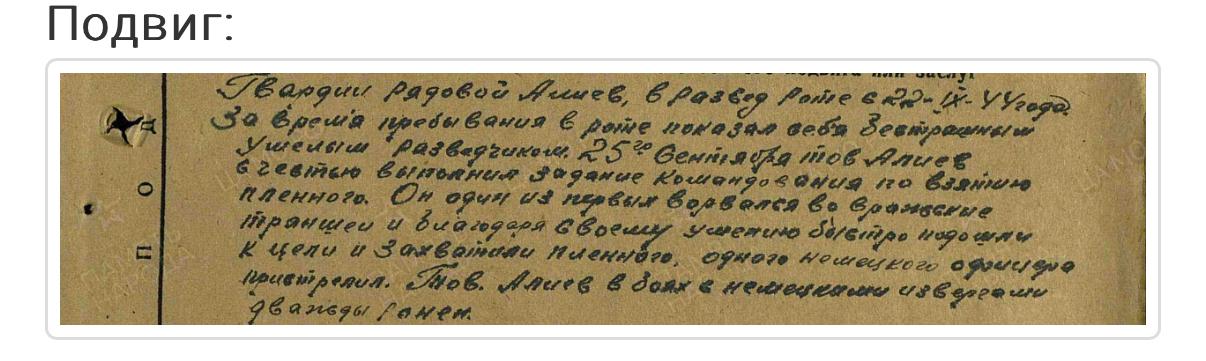 Подвиг:
Гвардии рядовой Алиев, в развед роте с 22-IX-44 года.
За время пребывания в роте показал себя бестрашным
умелым разведчиком. 25го Сентября тов Алиев
с честью выполнил задание командования по взятию
пленного. Он один из первых ворвался во вражские
траншеи и благодаря своему умению быстро подошли
к цели и захватили пленного, одного немецкого офицера
пристрелил. Тов. Алиев в боях с немецкими извергами
дважды ранен.
ПОД